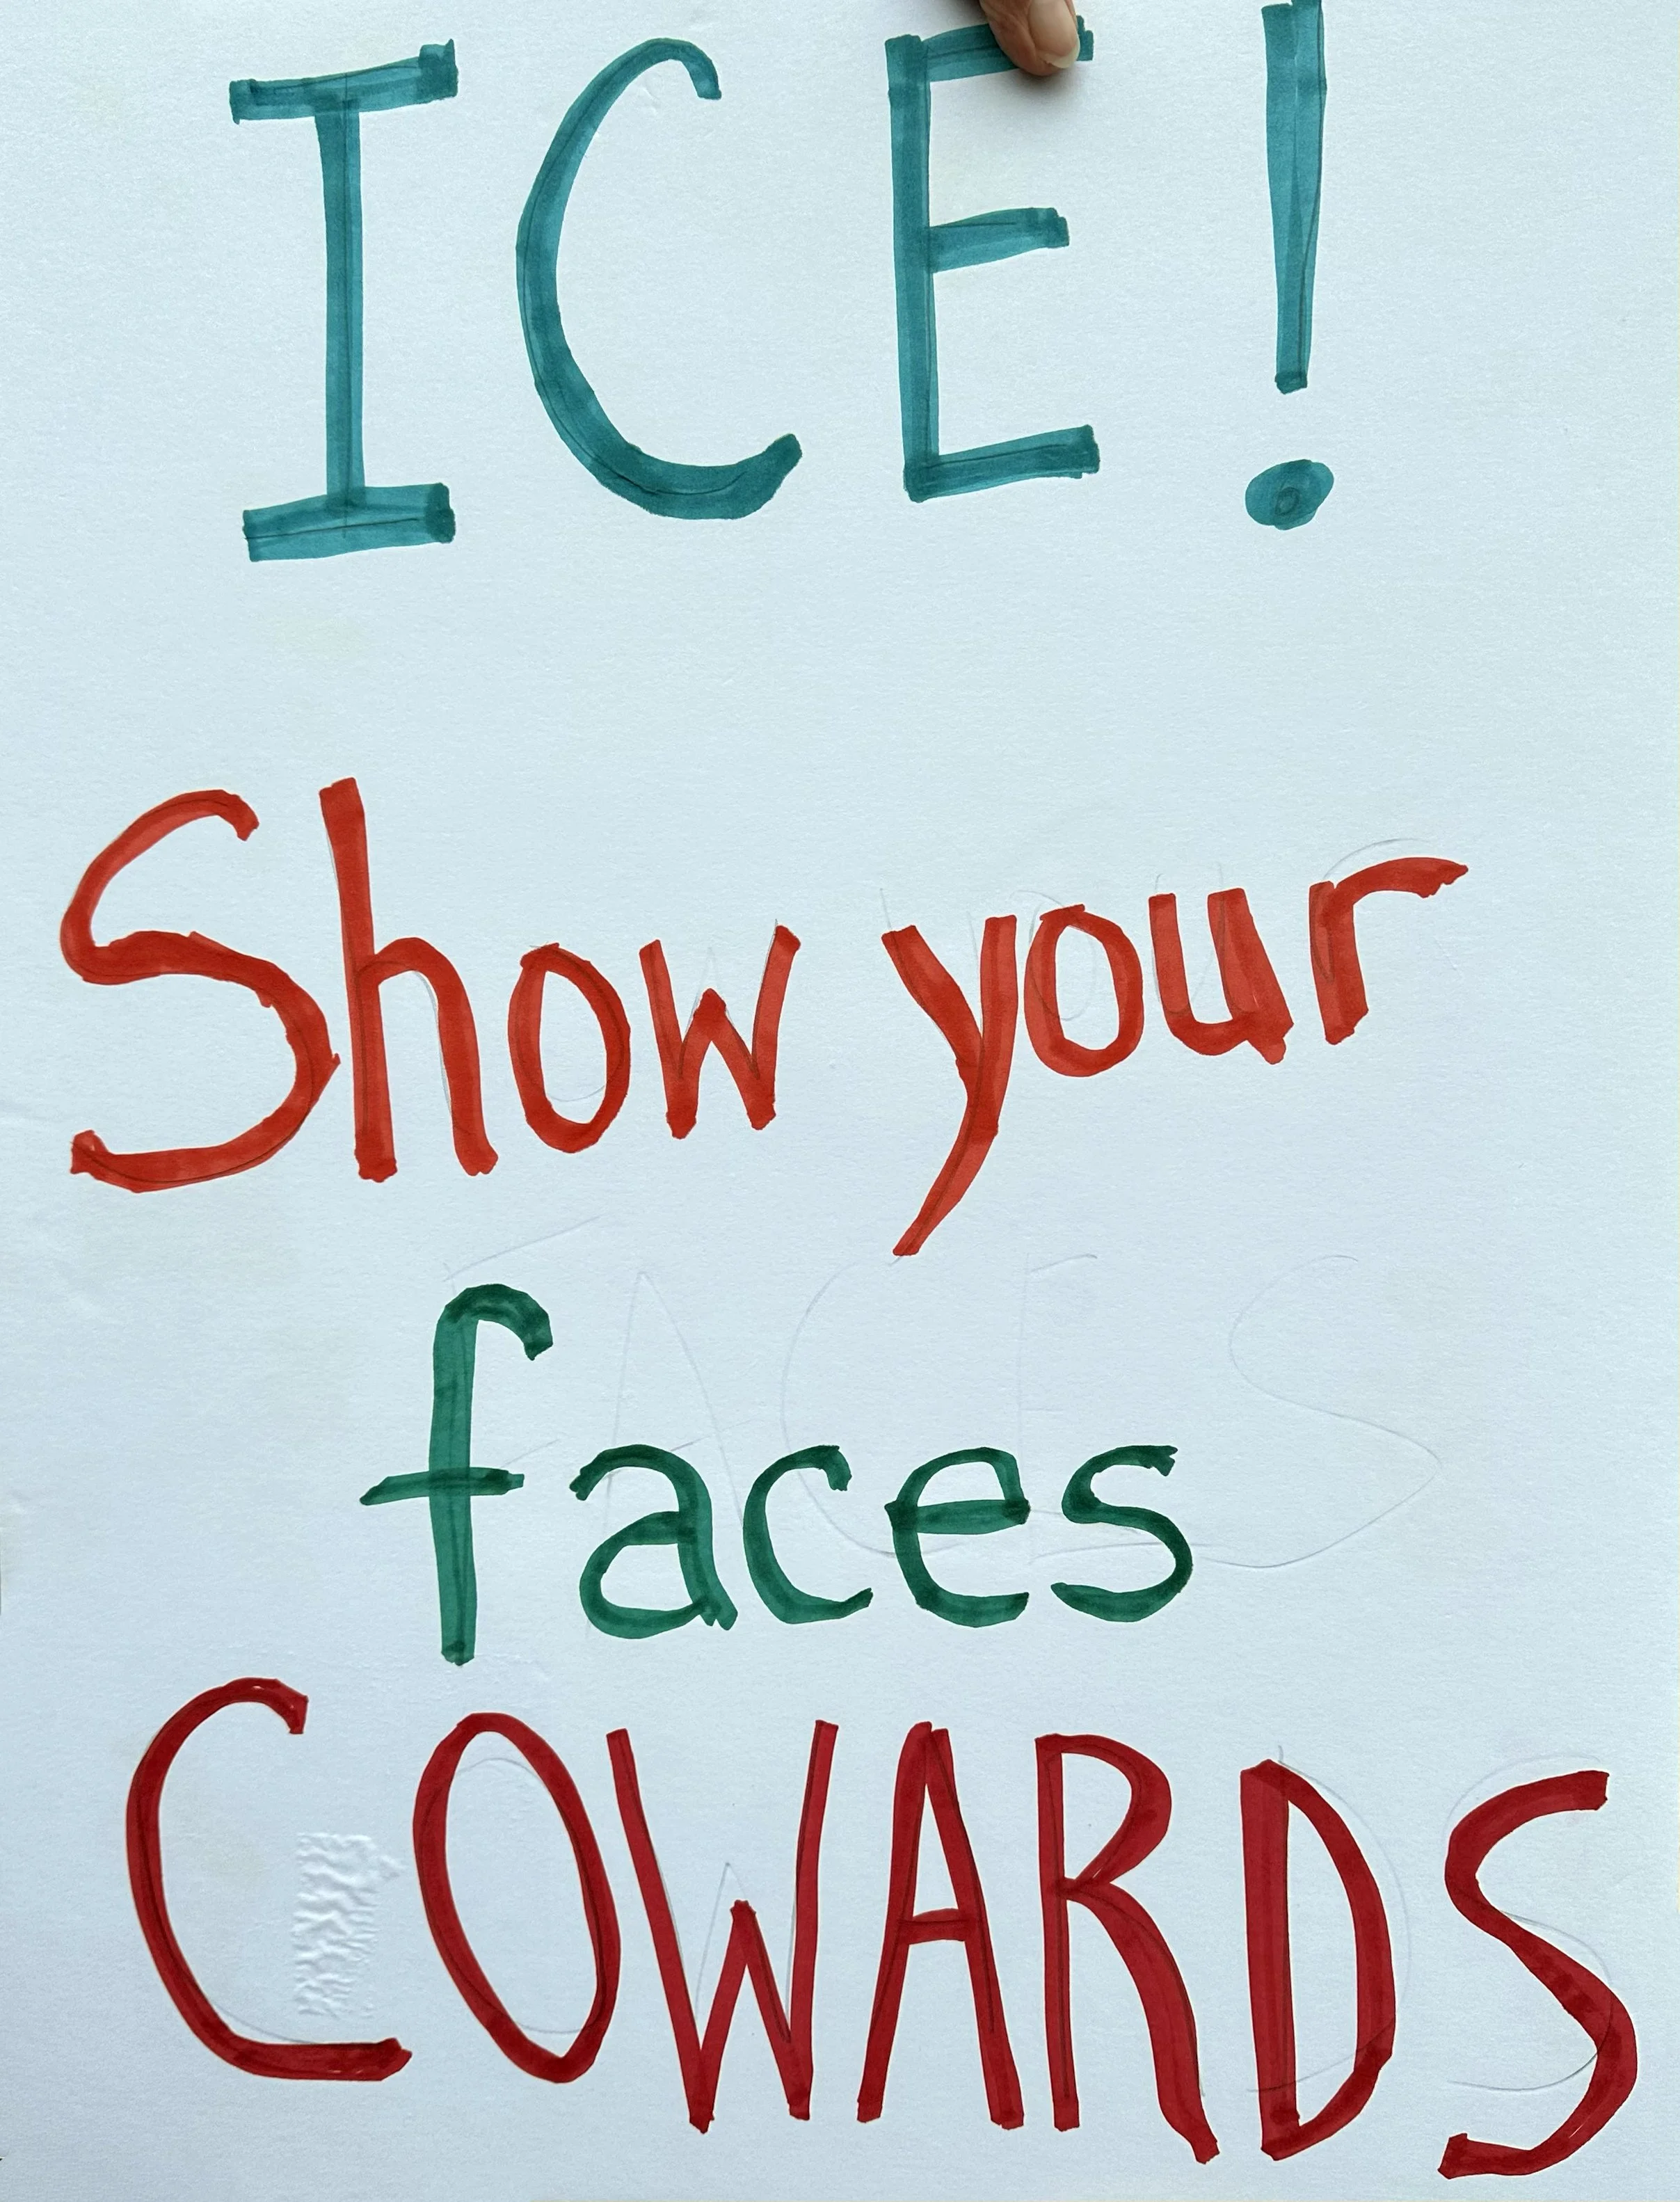 ICE!
Show your
faces
COWARDS